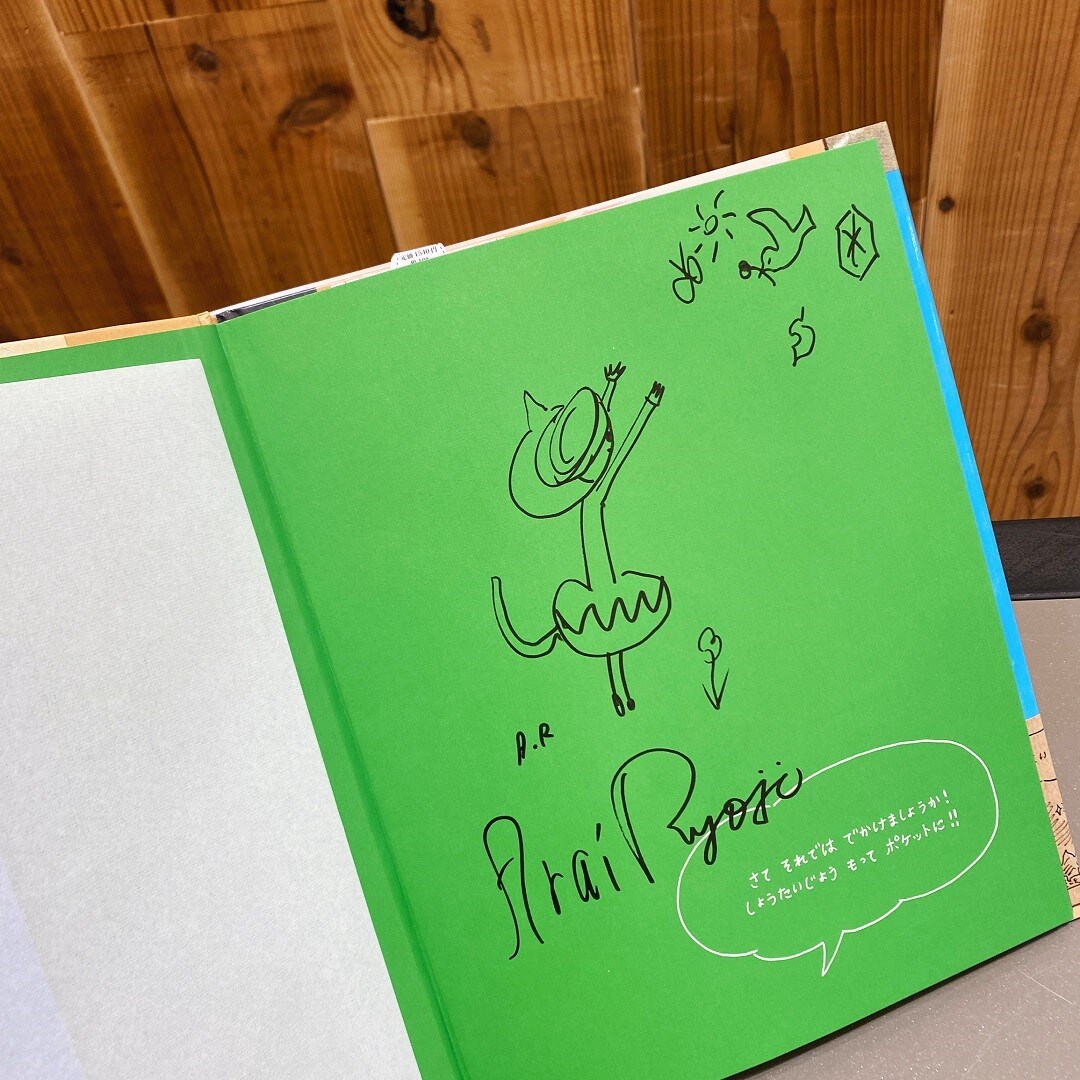 定価1540円
A.R
Arai Ryoji
さて それでは でかけましょうか!
しょうたいじょう もって ポケットに!!